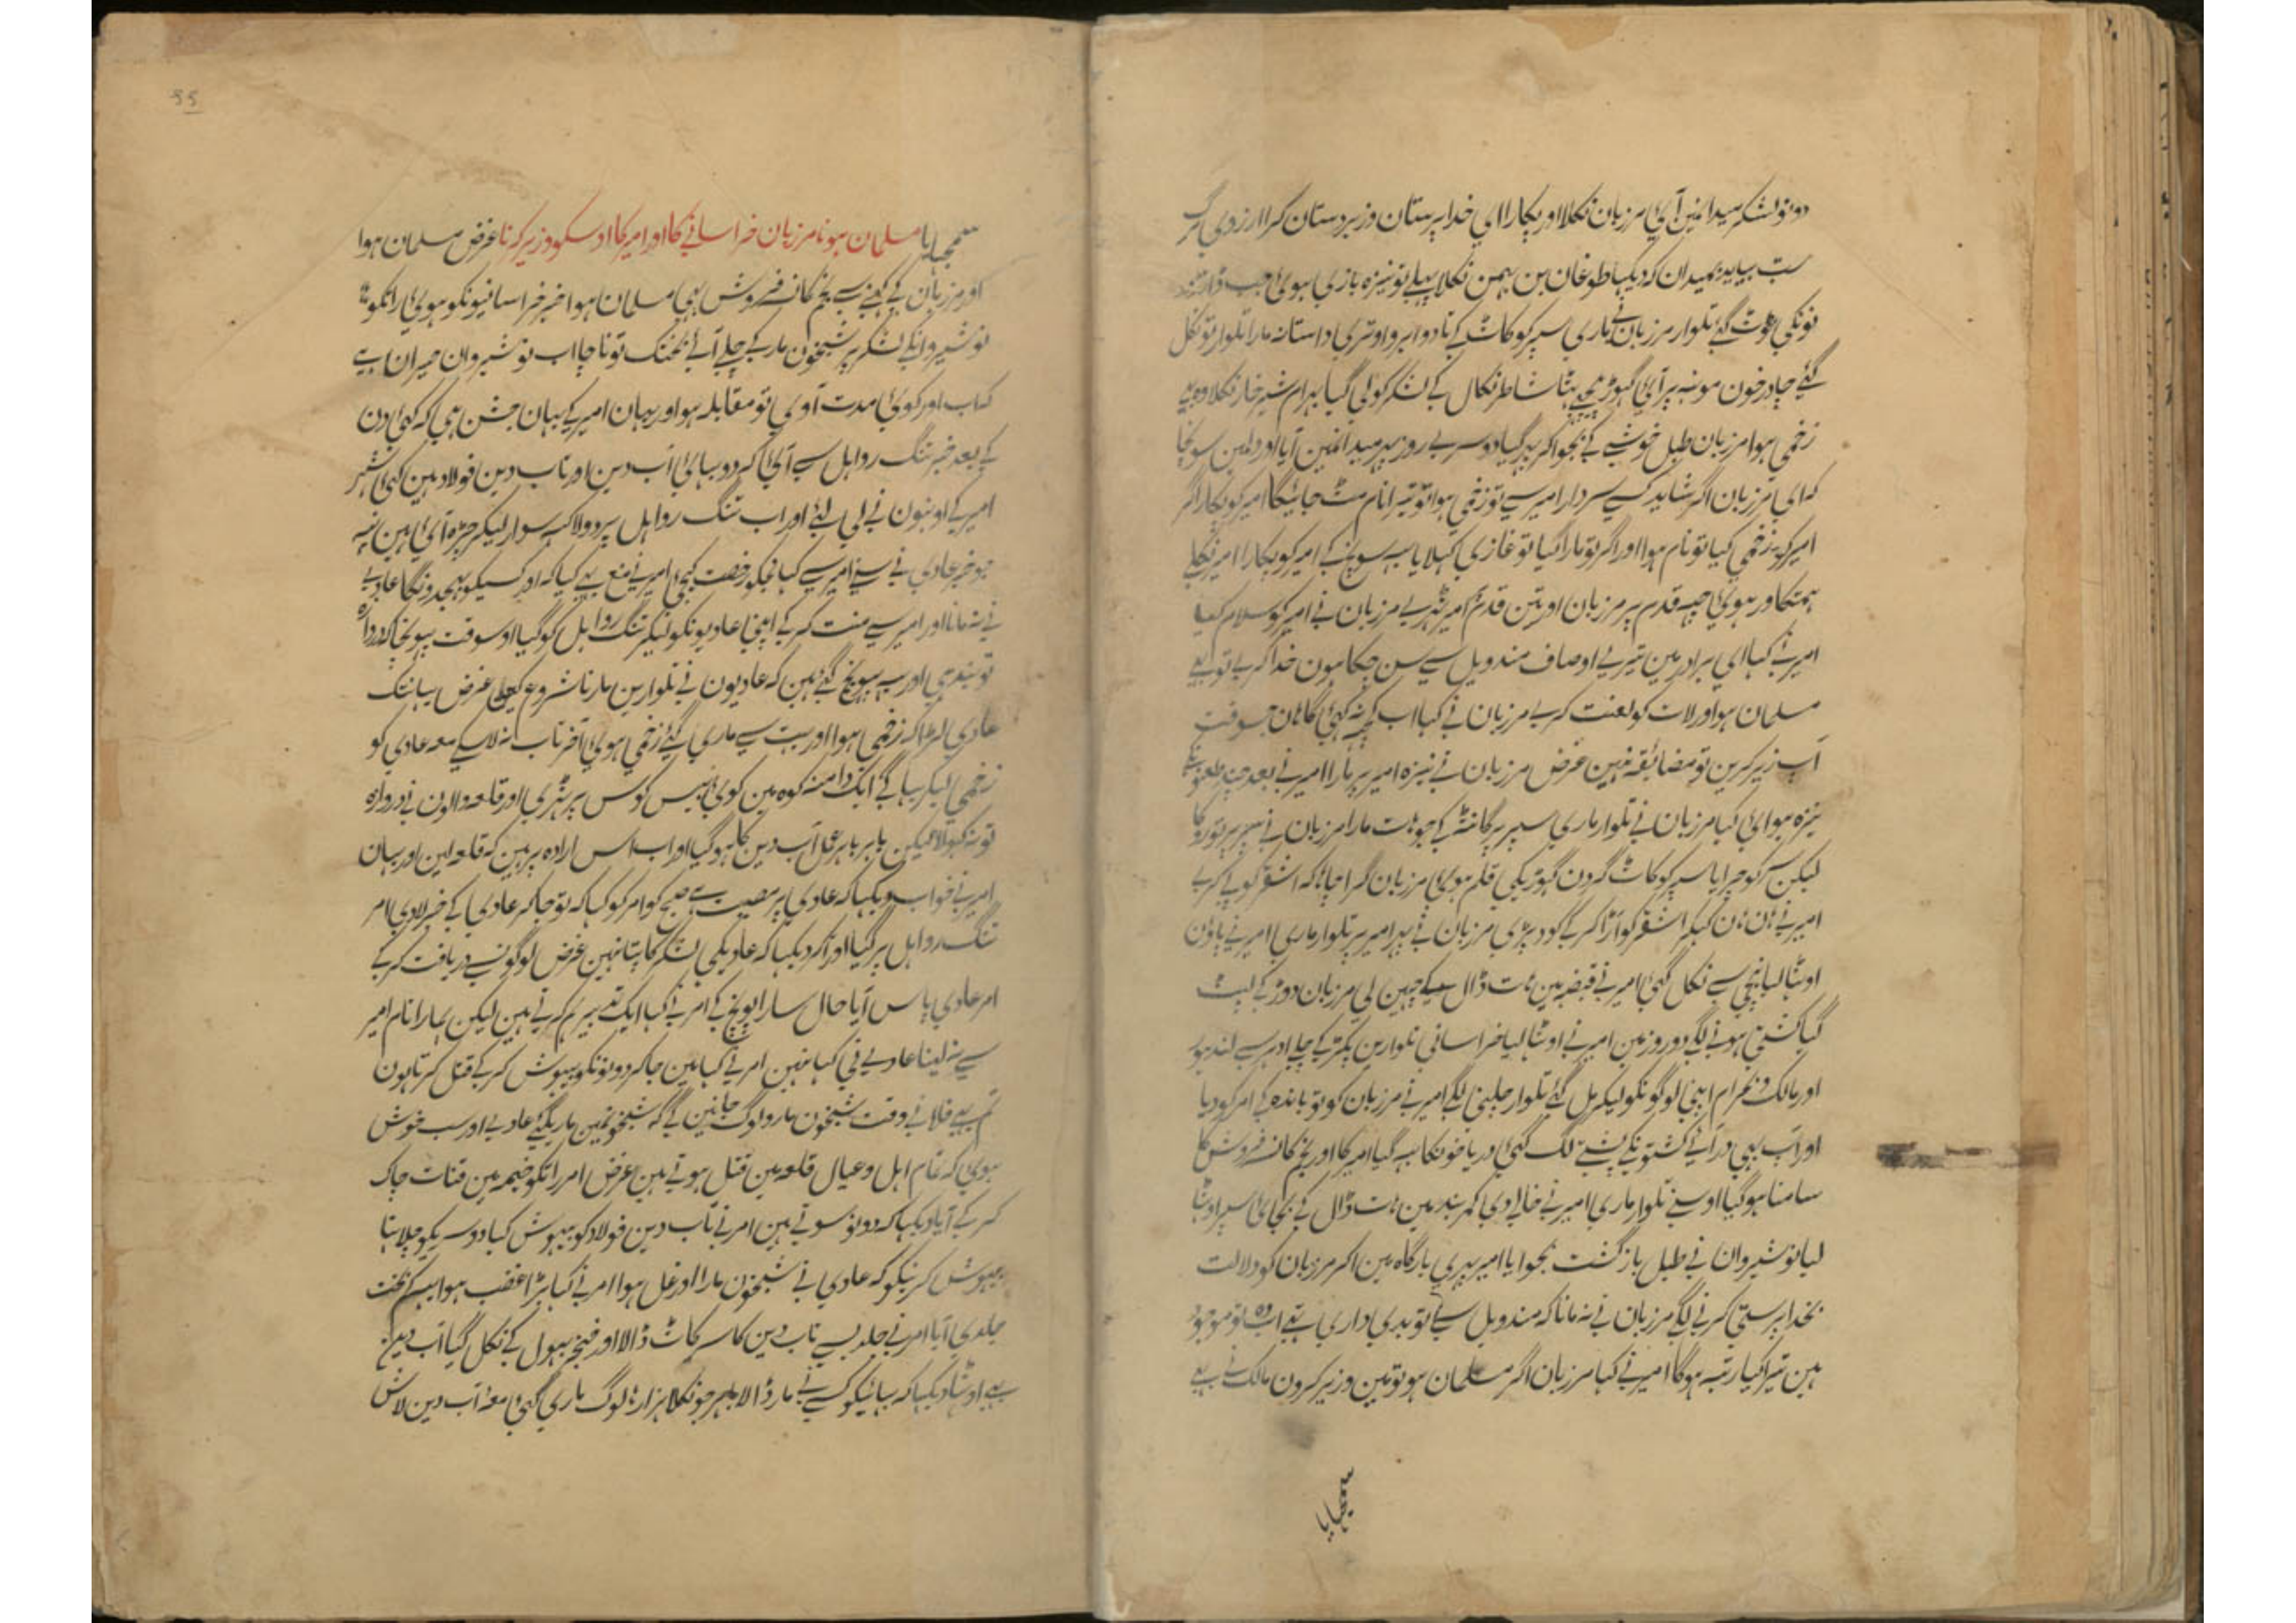 دونو لشکر میدانمین آئی مرزبان نکلا اور پکارا ای خدا پرستان و زبردستان کرا ارزوی مرگ
ست بیاید بمیدان که دیکها طوغان بن بهمن نکلا پہلے تو نیزہ بازی ہوئی جب
تلوار مرزبان نے ماری سپر کو کاٹ کے تا دو ابرو اوتری داستانہ مارا تلوار تو نکل
گئے چادر خون مونہہ پر آئی شاطر نکال کے لشکر کو لی گیا بہرام شیر خار نکلا وہ بہی
زخمی ہوا مرزبان طبل خوشی کے بجوا کر پہر گیا دوسرے روز پہر میدانمین آیا اور دلمین سونچا
کہ ای مرزبان اگر شاید کسے سردار امیر سے تو زخمی ہوا تو تیرا نام مٹ جائیگا امیر کو پکار اگر
امیر کو زخمی کیا تو نام ہوا اور اگر تو مارا گیا تو غازی کہلایا یہہ سونچ کے امیر کو پکارا امیر نکلے
ہمتکاور ہوئی چہہ قدم پر مرزبان اور تین قدم امیر ہٹے مرزبان نے امیر کو سلام کیا
امیر نے کہا ای برادر مین تیرے اوصاف مندویل سے سن چکا ہون خدا کرے تو بہی
مسلمان ہو اور لات کو لعنت کرے مرزبان نے کہا اب کچہہ نہ کہئی گا ہان جسوقت
آپ زیر کرین تو مضائقہ نہین غرض مرزبان نے نیزہ امیر پر مارا امیر نے بعد چند طعنونکے
نیزہ ہوائی کیا مرزبان نے تلوار ماری سپر پر گانٹہہ کے جو ہات مارا مرزبان نے سپر پر تو روکا
لیکن سر کو چرایا سپر کو کاٹ گردن گہوڑیکی قلم ہوئی مرزبان گرا چاہا کہ اشقر کو پی کرے
امیر نے ہان ہان کہکر اشقر کو اڑا کر کے گود پڑی مرزبان نے پہر امیر پر تلوار ماری امیر نے پاؤن
اوٹہا لیا نیچی سے نکل گئی امیر نے قبضہ مین ہات ڈال کے چہین لی مرزبان دوڑ کے لپٹ
گیا کشتی ہونے لگے دو روز مین امیر نے اوٹہا لیا خراسانی تلوارین پکڑ کے چلے ادہر سے لندہور
اور مالک و بہرام اپنی لوگونکو لیکر مل گئے تلوار چلنی لگے امیر نے مرزبان کو تو باندہ کے امر کو دیا
اور آپ بہی در آئے کشتونکے پشتے لگ گئی دریا خونکا بہہ گیا امیر کا اور بختکانے فروش کا
سامنا ہو گیا اوسنے تلوار ماری امیر نے خالی دی کمر بند مین ہات ڈال کے بجائی سپر اوٹہا
لیا نوشیروان نے طبل بازگشت بجوایا امیر پہری بارگاہ مین اکر مرزبان کو دلالت
بخدا پرستی کرنے لگے مرزبان نے نہ مانا کہ مندویل سے تو بدی داری ہے اب وہ تو موجود
ہین تیرا کیا رتبہ ہوگا امیر نے کہا مرزبان اگر مسلمان ہو تو مین وزیر کرون مالک نے بہی
سمجہایا
55
سمجہایا مسلمان ہونا مرزبان خراسانے کا اور امیر کا اوسکو وزیر کرنا غرض مسلمان ہوا
اور مرزبان کے کہنے سے بختکانے فروش بہی مسلمان ہوا خبر خراسانیونکو ہوئی راتکو
نوشیروانکے لشکر پر شبخون مار کے چلے آئے بختک تو ناچا اب نوشیروان حیران ہے
کہ اب اور کوئی مدت آوی تو مقابلہ ہو اور یہان امیر کے یہان جشن ہی کہ کہئی دن
کے بعد خبر تنگ رواہل سے آئی کہ دو بہائی آب دین اور ناب دین فولاد ہین کہئی شہر
امیر کے اونہون نے لی لئے اور اب تنگ رواہل پر دو لاکہہ سوار لیکر چڑہ آئی ہین
جو خبر عادی نے سنے امیر سے کہا مجکو رخصت کیجی امیر نے منع بہی کیا کہ اور کسیکو بہیجدونگا عادی
نے نہ مانا اور امیر سے منت کر کے اپنی عادیونکو لیکر تنگ رواہل کو گیا اوسوقت پہونچا کہ دروازہ
توبندی اور یہہ پہونچ گئے ہین کہ عادیون نے تلوارین مارنا شروع کیلی غرض یہانتک
عادی لڑا کہ زخمی ہوا اور بہت سے ماری گئے زخمی ہوئی آخر تاب نہ لاسکے معہ عادی کو
زخمی لیکر بہاگے ایک دامنہ کوہ مین کوئی بیس کوس پر ٹہری اور قلعہ والون نے دروازہ
تو نہ کہولا لیکن باہر باہر عمل آب دین کا ہو گیا اور اب اس ارادہ پر ہین کہ قلعہ لین اور یہان
امیر نے خواب دیکہا کہ عادی پر مصیبت ہے صبح کو امر کو کہا کہ تو جا کہ عادی کے خبر لادی امر
تنگ رواہل پر گیا اور آکر دیکہا کہ عادیکی لشکر کا پتا نہین غرض لوگونسے دریافت کر کے
امر عادی پاس آیا حال سارا پوچہہ کے امر نے کہا ایک تدبیر ہم کرتے ہین لیکن ہمارا نام امیر
سے نہ لینا عادی نے کہا نہین امر نے کہا مین جا کر دونونکو بیہوش کر کے قتل کرتا ہون
تم بہی فلانے وقت شبخون مارو لوگ جانین گے کہ شبخونمین مار گئے عادی اور سب خوش
ہوئی کہ تمام اہل و عیال قلعہ مین قتل ہوتے ہین غرض امر راتکو خیمہ مین قنات چاک
کر کے آیا دیکہا کہ دونو سوتے ہین امر نے ناب دین فولاد کو بیہوش کیا دوسریکو چاہتا
بیہوش کرنیکو کہ عادی نے شبخون مارا اور غل ہوا امر نے کہا بڑا غضب ہوا بیہہ کمبخت
جلدی آیا امر نے جلدی سے ناب دین کا سر کاٹ ڈالا اور خنجر بہول کے نکل گیا آب دین
بہی اوٹہا دیکہا کہ بہائیکو کسنے مار ڈالا باہر جو نکلا ہزارہا لوگ ماری گئی معہ آب دین لاش